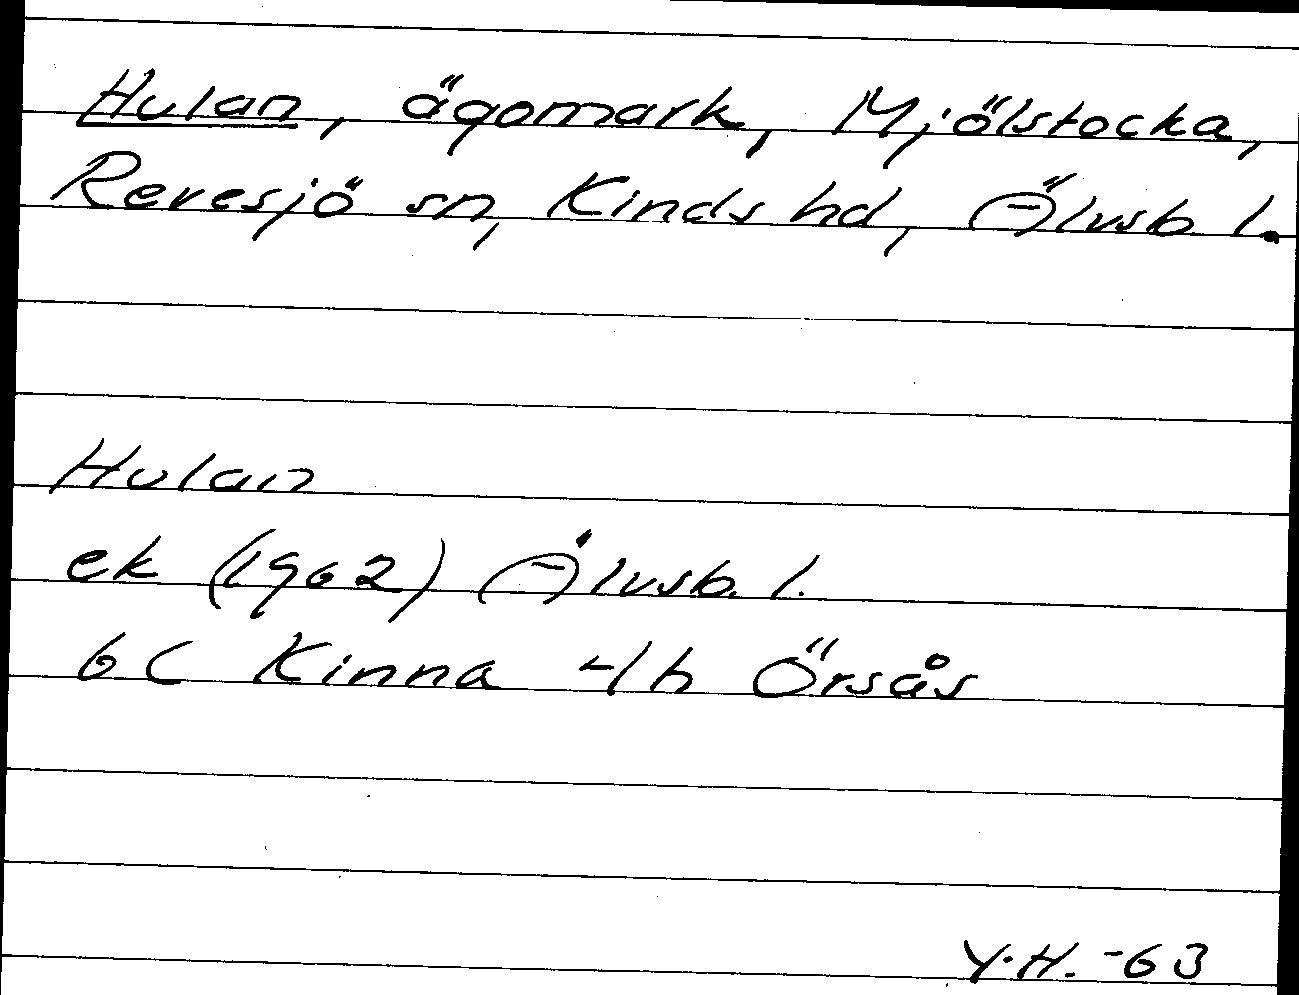 Hulan, ägomark, Mjölstocka,
Revesjö sn, Kinds hd, Älvsb. l.
Hulan
ek (1962) Älvsb. l.
6C Kinna 4h Örsås
Y.H. -63